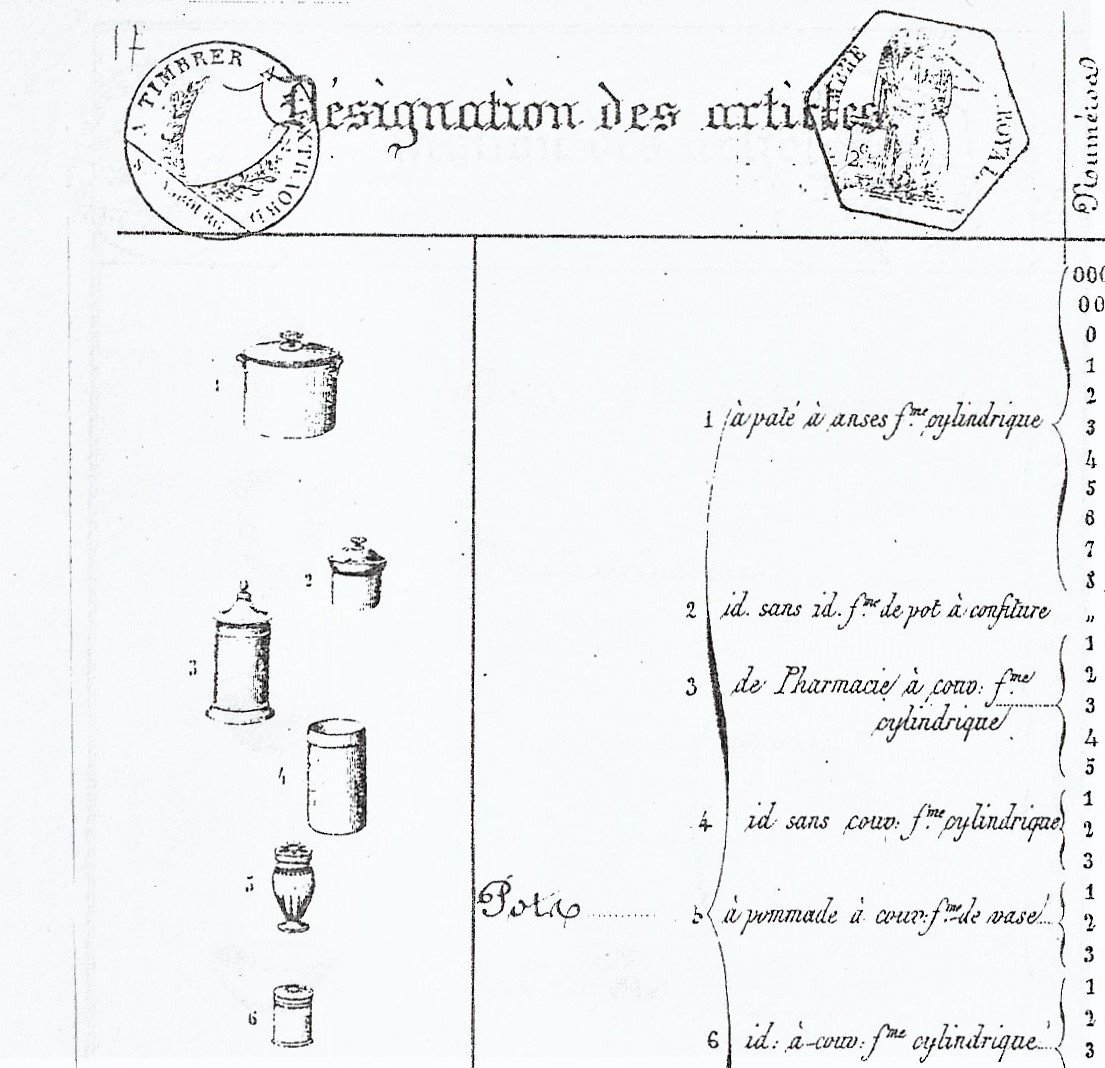 17
A TIMBRER A L'EXTRAORD
TIMBRE ROYAL.
2.e
Désignation des articles
Numéros
000
00
0
1
2
1 à paté à anses f.me cylindrique 3
4
5
6
7
8
2 id. sans id. f.me de pot à confiture „
1
2
3 de Pharmacie à couv: f.me 3
cylindrique 4
5
1
4 id sans couv: f.me cylindrique 2
3
1
Pots 5 à pommade à couv: f.me de vase 2
3
1
2
6 id: à couv: f.me cylindrique 3
1
2
3
4
5
6